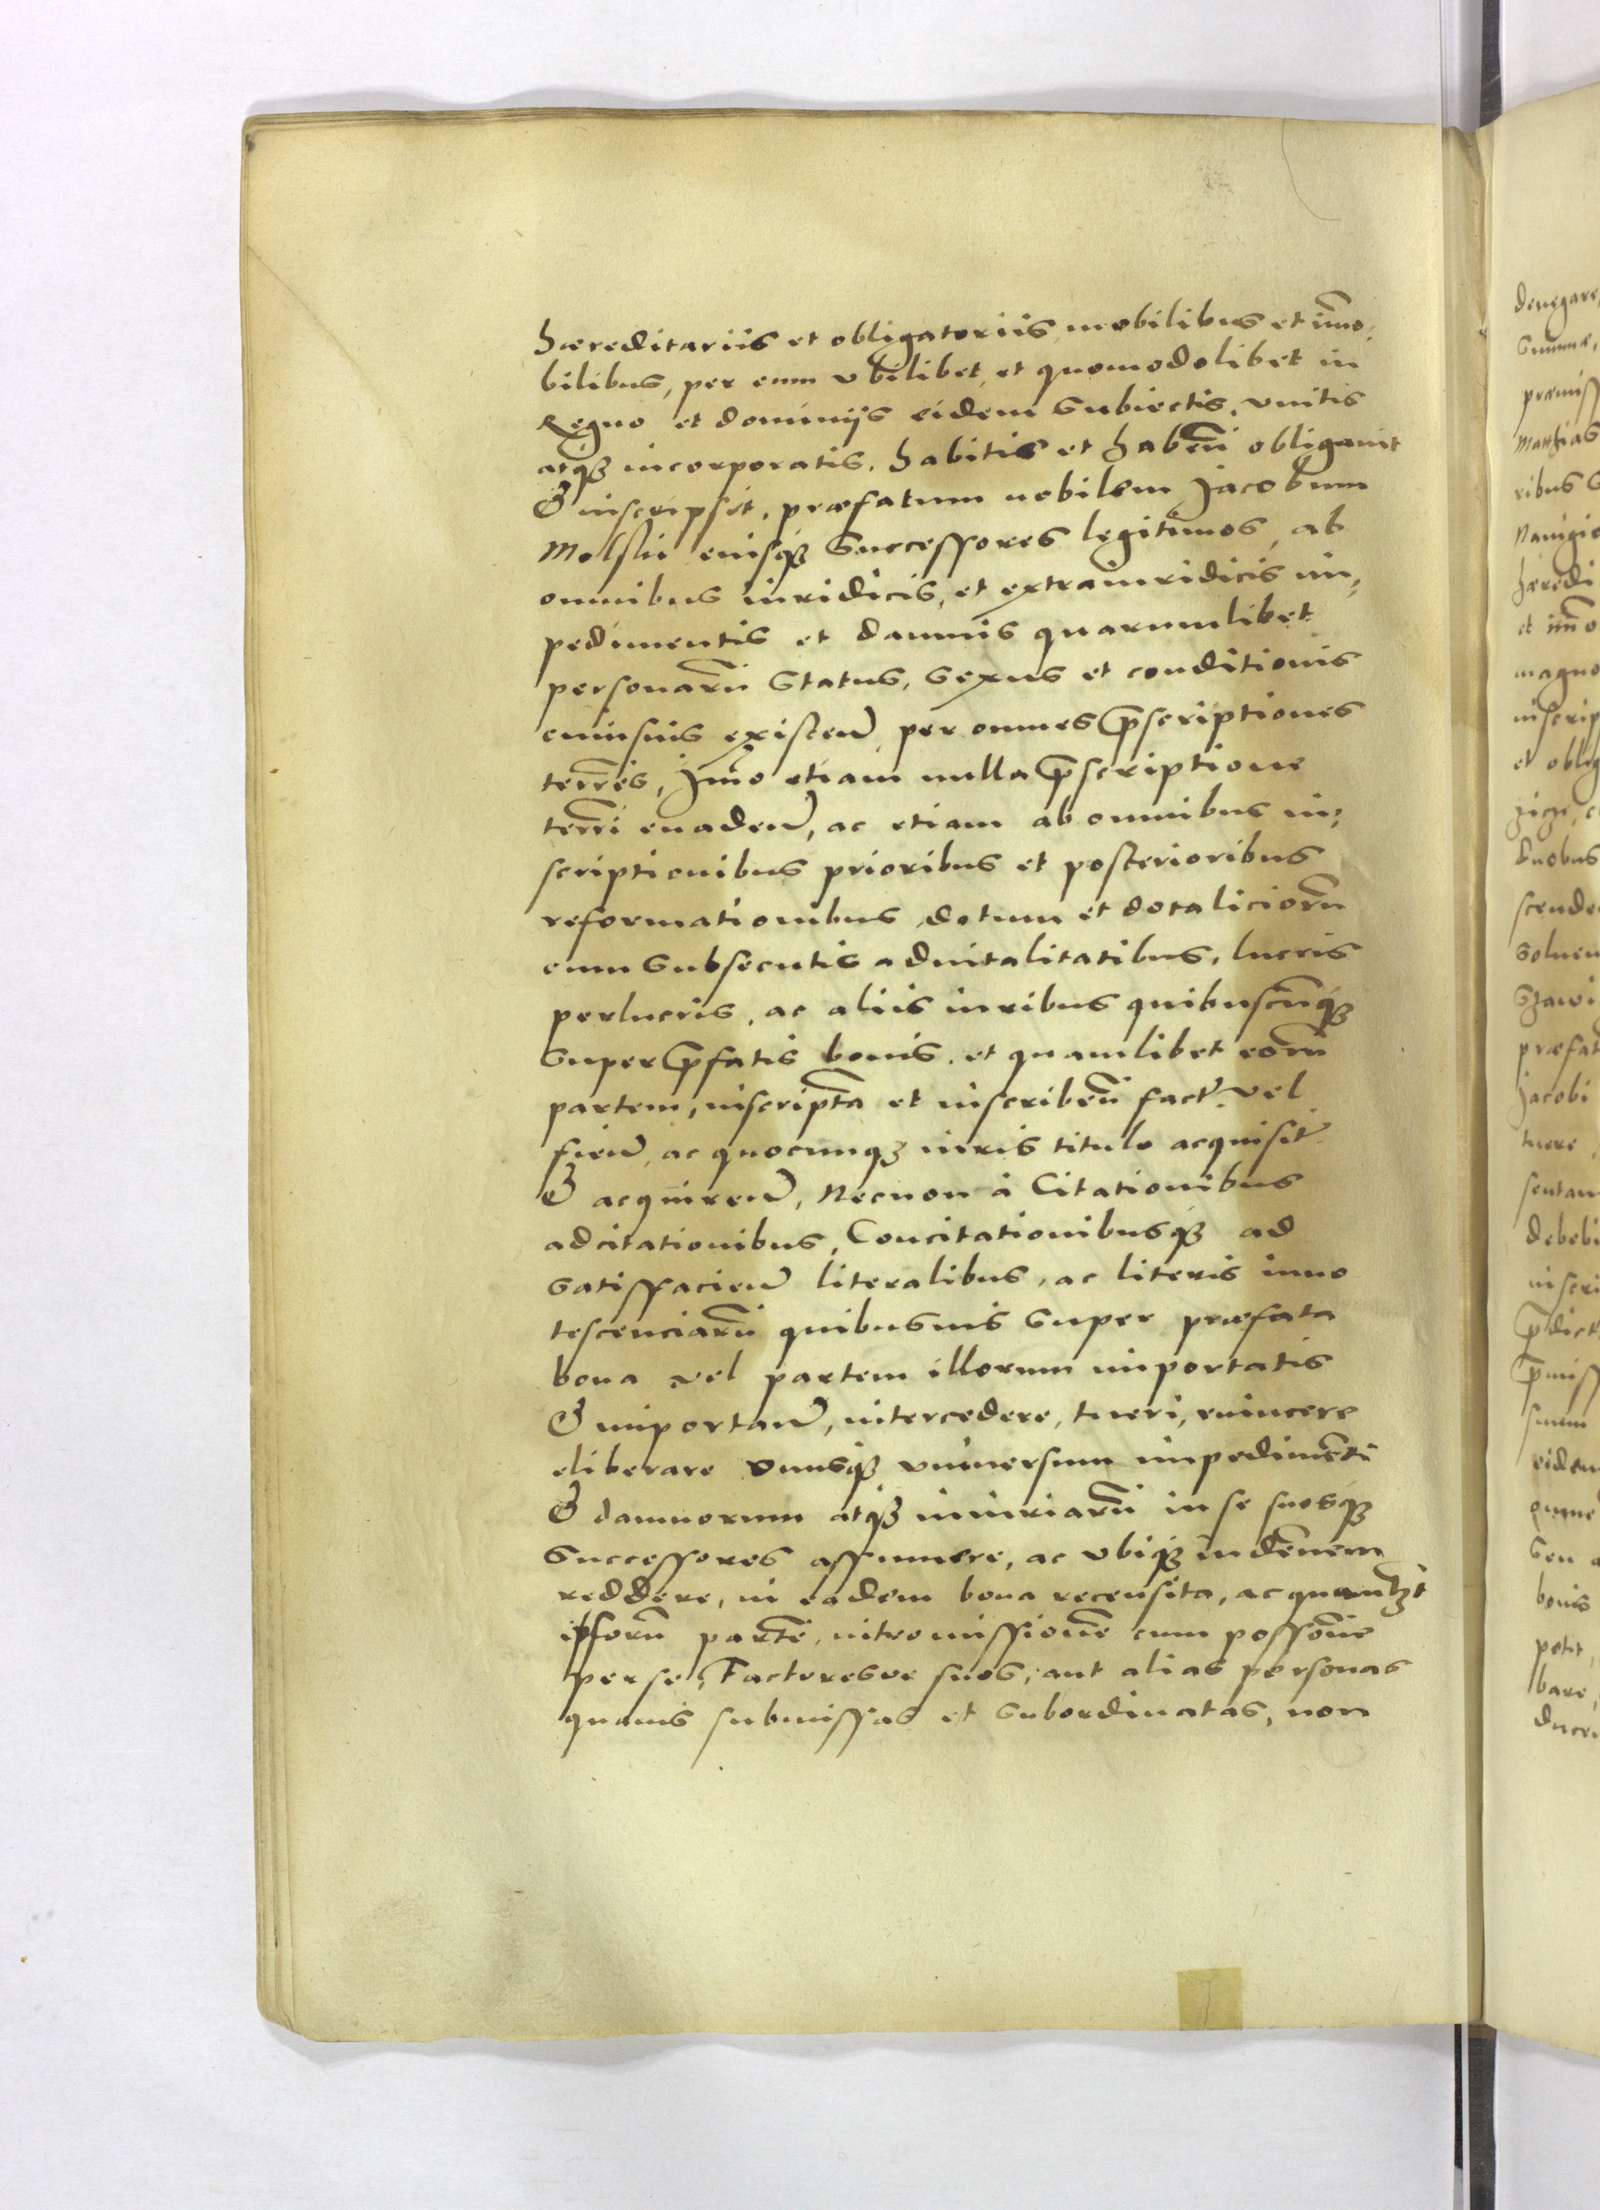 haereditariis et obligatoriis mobilibus et im̄o,
bilibus, per eum vbilibet et quomodolibet in
Regno et dominijs eidem Subiectis, vnitis
atq́ꝫ incorporatis, habitis et habeñ obligauit
& inscripsit, praefatum nobilem Jacobum
Molskij eiusq́ꝫ Successores legitimos, ab
omnibus iuridicis, et extraiuridicis im,
pedimentis et damnis quarumlibet
personarū Status, Sexus et conditionis
cuiusuis existeñ, per omnes p̄scriptiones
terr̄es, Im̄o etiam nulla p̄scriptione
terr̄i euadeñ, ac etiam ab omnibus in,
scriptionibus prioribus et posterioribus
reformationibus dotum et dotaliciorū
eum Subsecutis aduitalitatibus, lucris
perlucris, ac aliis iuribus quibuscūq́ꝫ
Super p̄fatis bonis, et quamlibet eorū
partem, inscript̄a et inscribeñ fact̄. vel
fieñ, ac quocunqꝫ iuris titulo acquisit̄
& acquireñ, Necnon à Citationibus
adcitationibus, Concitationibusq́ꝫ ad
Satisfacieñ literalibus, ac literis inno
tescenciarū quibusuis Super praefata
bona vel partem illorum importatis
& importañ, intercedere, tueri, euincere
eliberare Onusq́ꝫ vniuersum impedimēti
& damnorum atq́ꝫ iniuriarū in se suosq́ꝫ
Successores assumere, ac vbiq́ꝫ indēnem
reddere, in eadem bona recensita, ac quamlꝫt
ipsorū partē, intromissionē cum possōne
per se, Factoresue suos, aut alias personas
quauis submissas et Subordinatas, non

denegare,
Summae,
praemiss
Matthias
ribus S
haeredi
et im̄o
magno
inscrip
et oblig
duobus
scende
Soluen
praefat
Jacobi
tuere,
debebi
inscri
p̄dict
p̄miss
suum
eidem
omne
Seu a
bonis
petit,
bare,